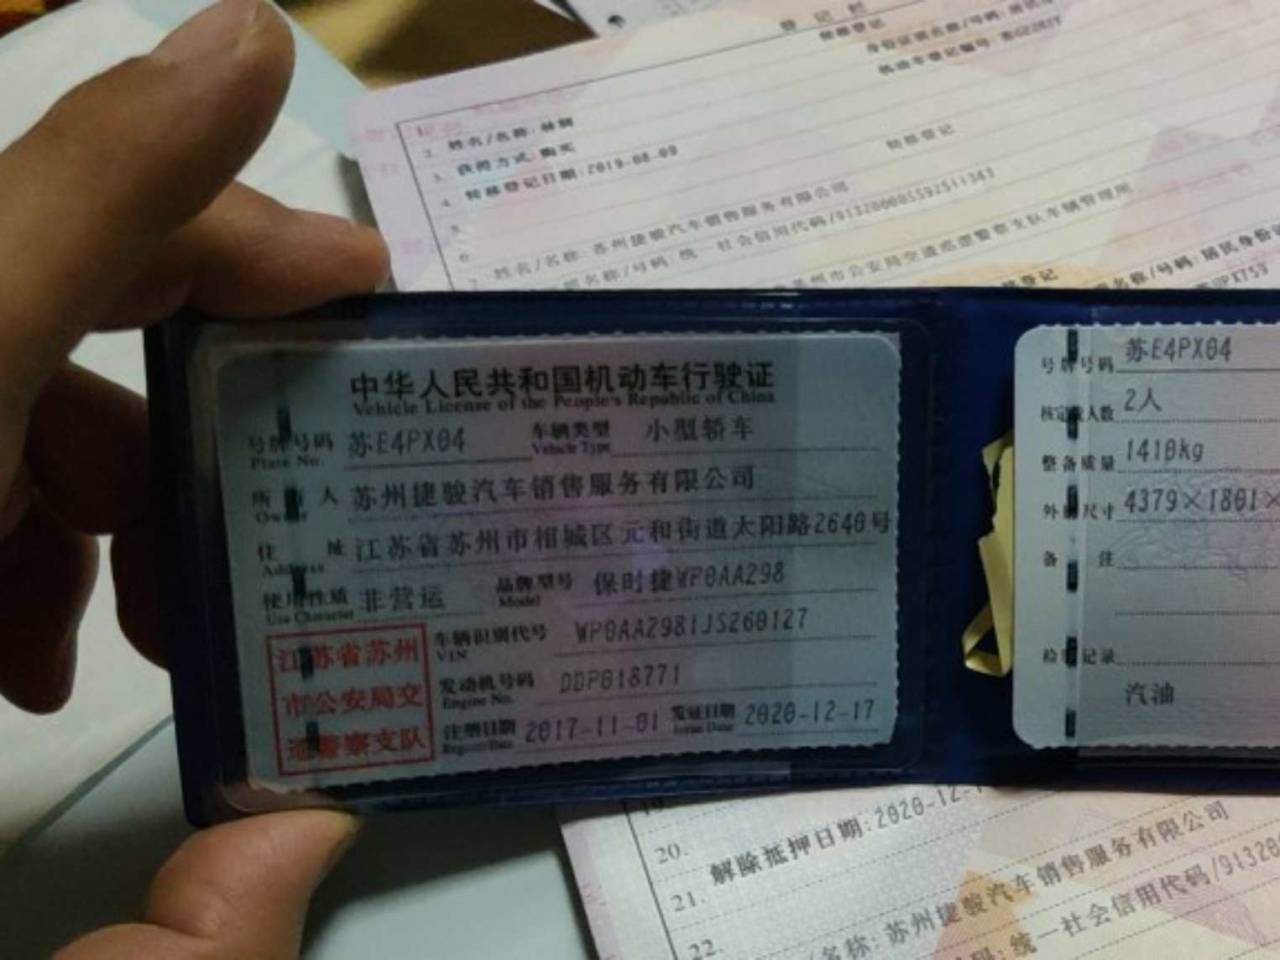 登记栏
转移登记
机动车登记编号:
1.
2. 姓名/名称:
3. 获得方式:购买
4. 转移登记日期:2019-08-09
5
转移登记
6
7 姓名/名称:苏州捷骏汽车销售服务有限公司
名称/号码:统一社会信用代码/
苏州市公安局交通巡逻警察支队车辆管理所
登记
名称/号码:居民身份证
中华人民共和国机动车行驶证
Vehicle License of the People's Republic of China
号牌号码 苏E4PX04 车辆类型 小型轿车
Plate No. Vehicle Type
所有人 苏州捷骏汽车销售服务有限公司
Owner
住址 江苏省苏州市相城区元和街道太阳路2640号
Address
使用性质 非营运 品牌型号 保时捷WP0AA298
Use Character Model
车辆识别代号 WP0AA2981JS260127
VIN
发动机号码 DDP018771
Engine No.
注册日期 2017-11-01 发证日期 2020-12-17
Register Date Issue Date
江苏省苏州
市公安局交
巡警察支队
号牌号码 苏E4PX04
核定载人数 2人
整备质量 1410kg
外廓尺寸 4379×1801×
备注
检验记录
汽油
19.
20. 解除抵押日期:2020-12-1
21.
22. /名称:苏州捷骏汽车销售服务有限公司
号码:统一社会信用代码/91320